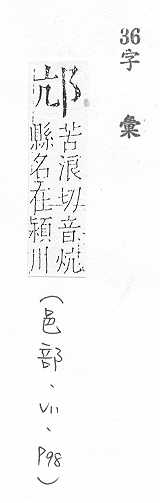 36
字彙
邟
苦浪切音炕
縣名在潁川
(邑部、VII、P98)